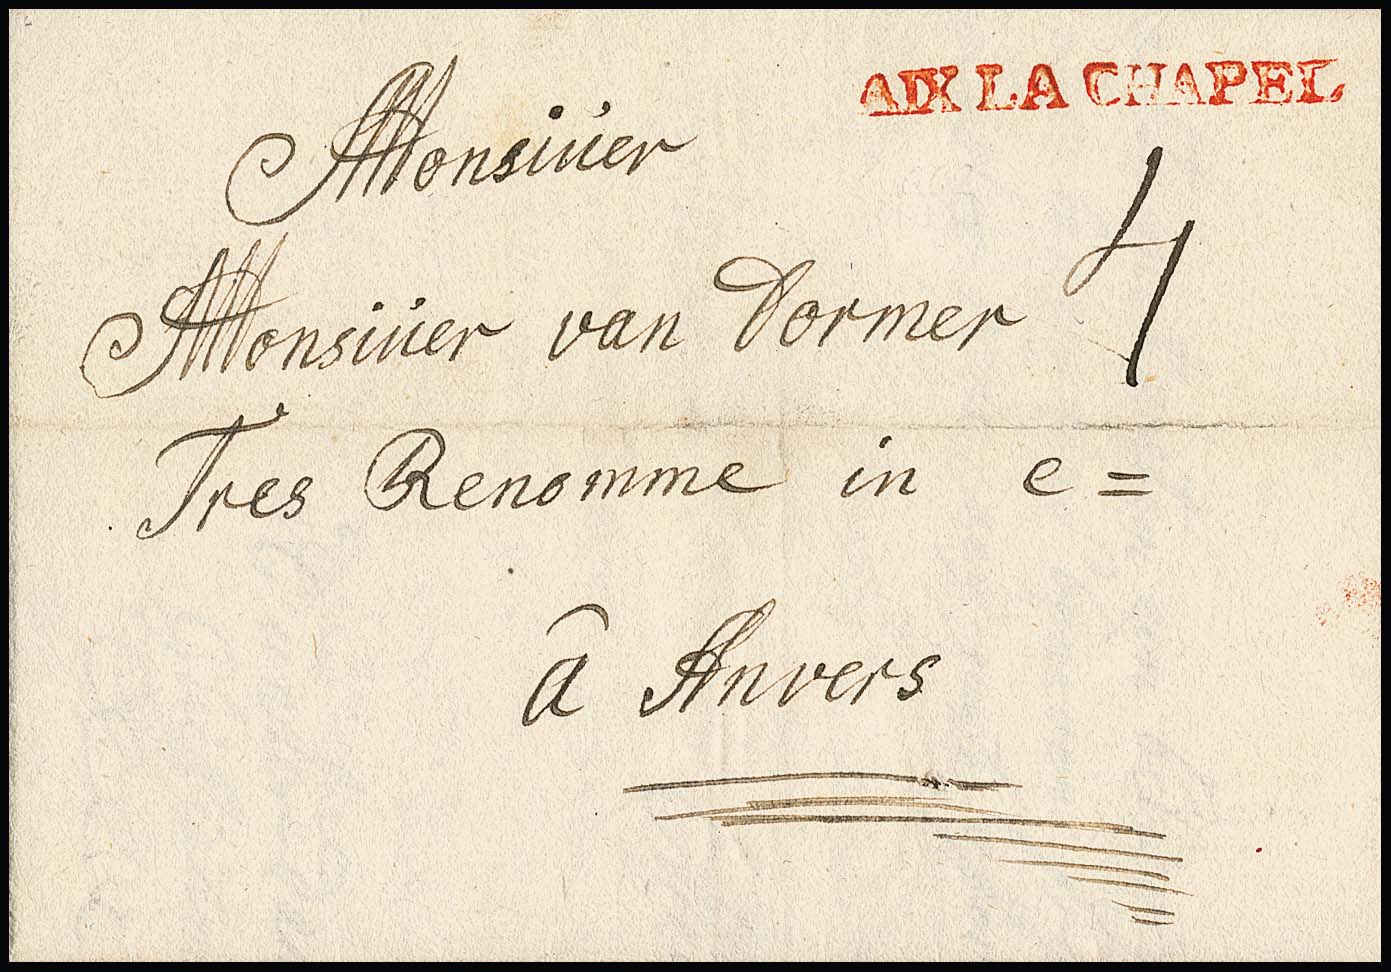 AIX LA CHAPEL
Monsiüer
4
Monsiüer van Dormer
Tres Renomme in e=
â Anvers